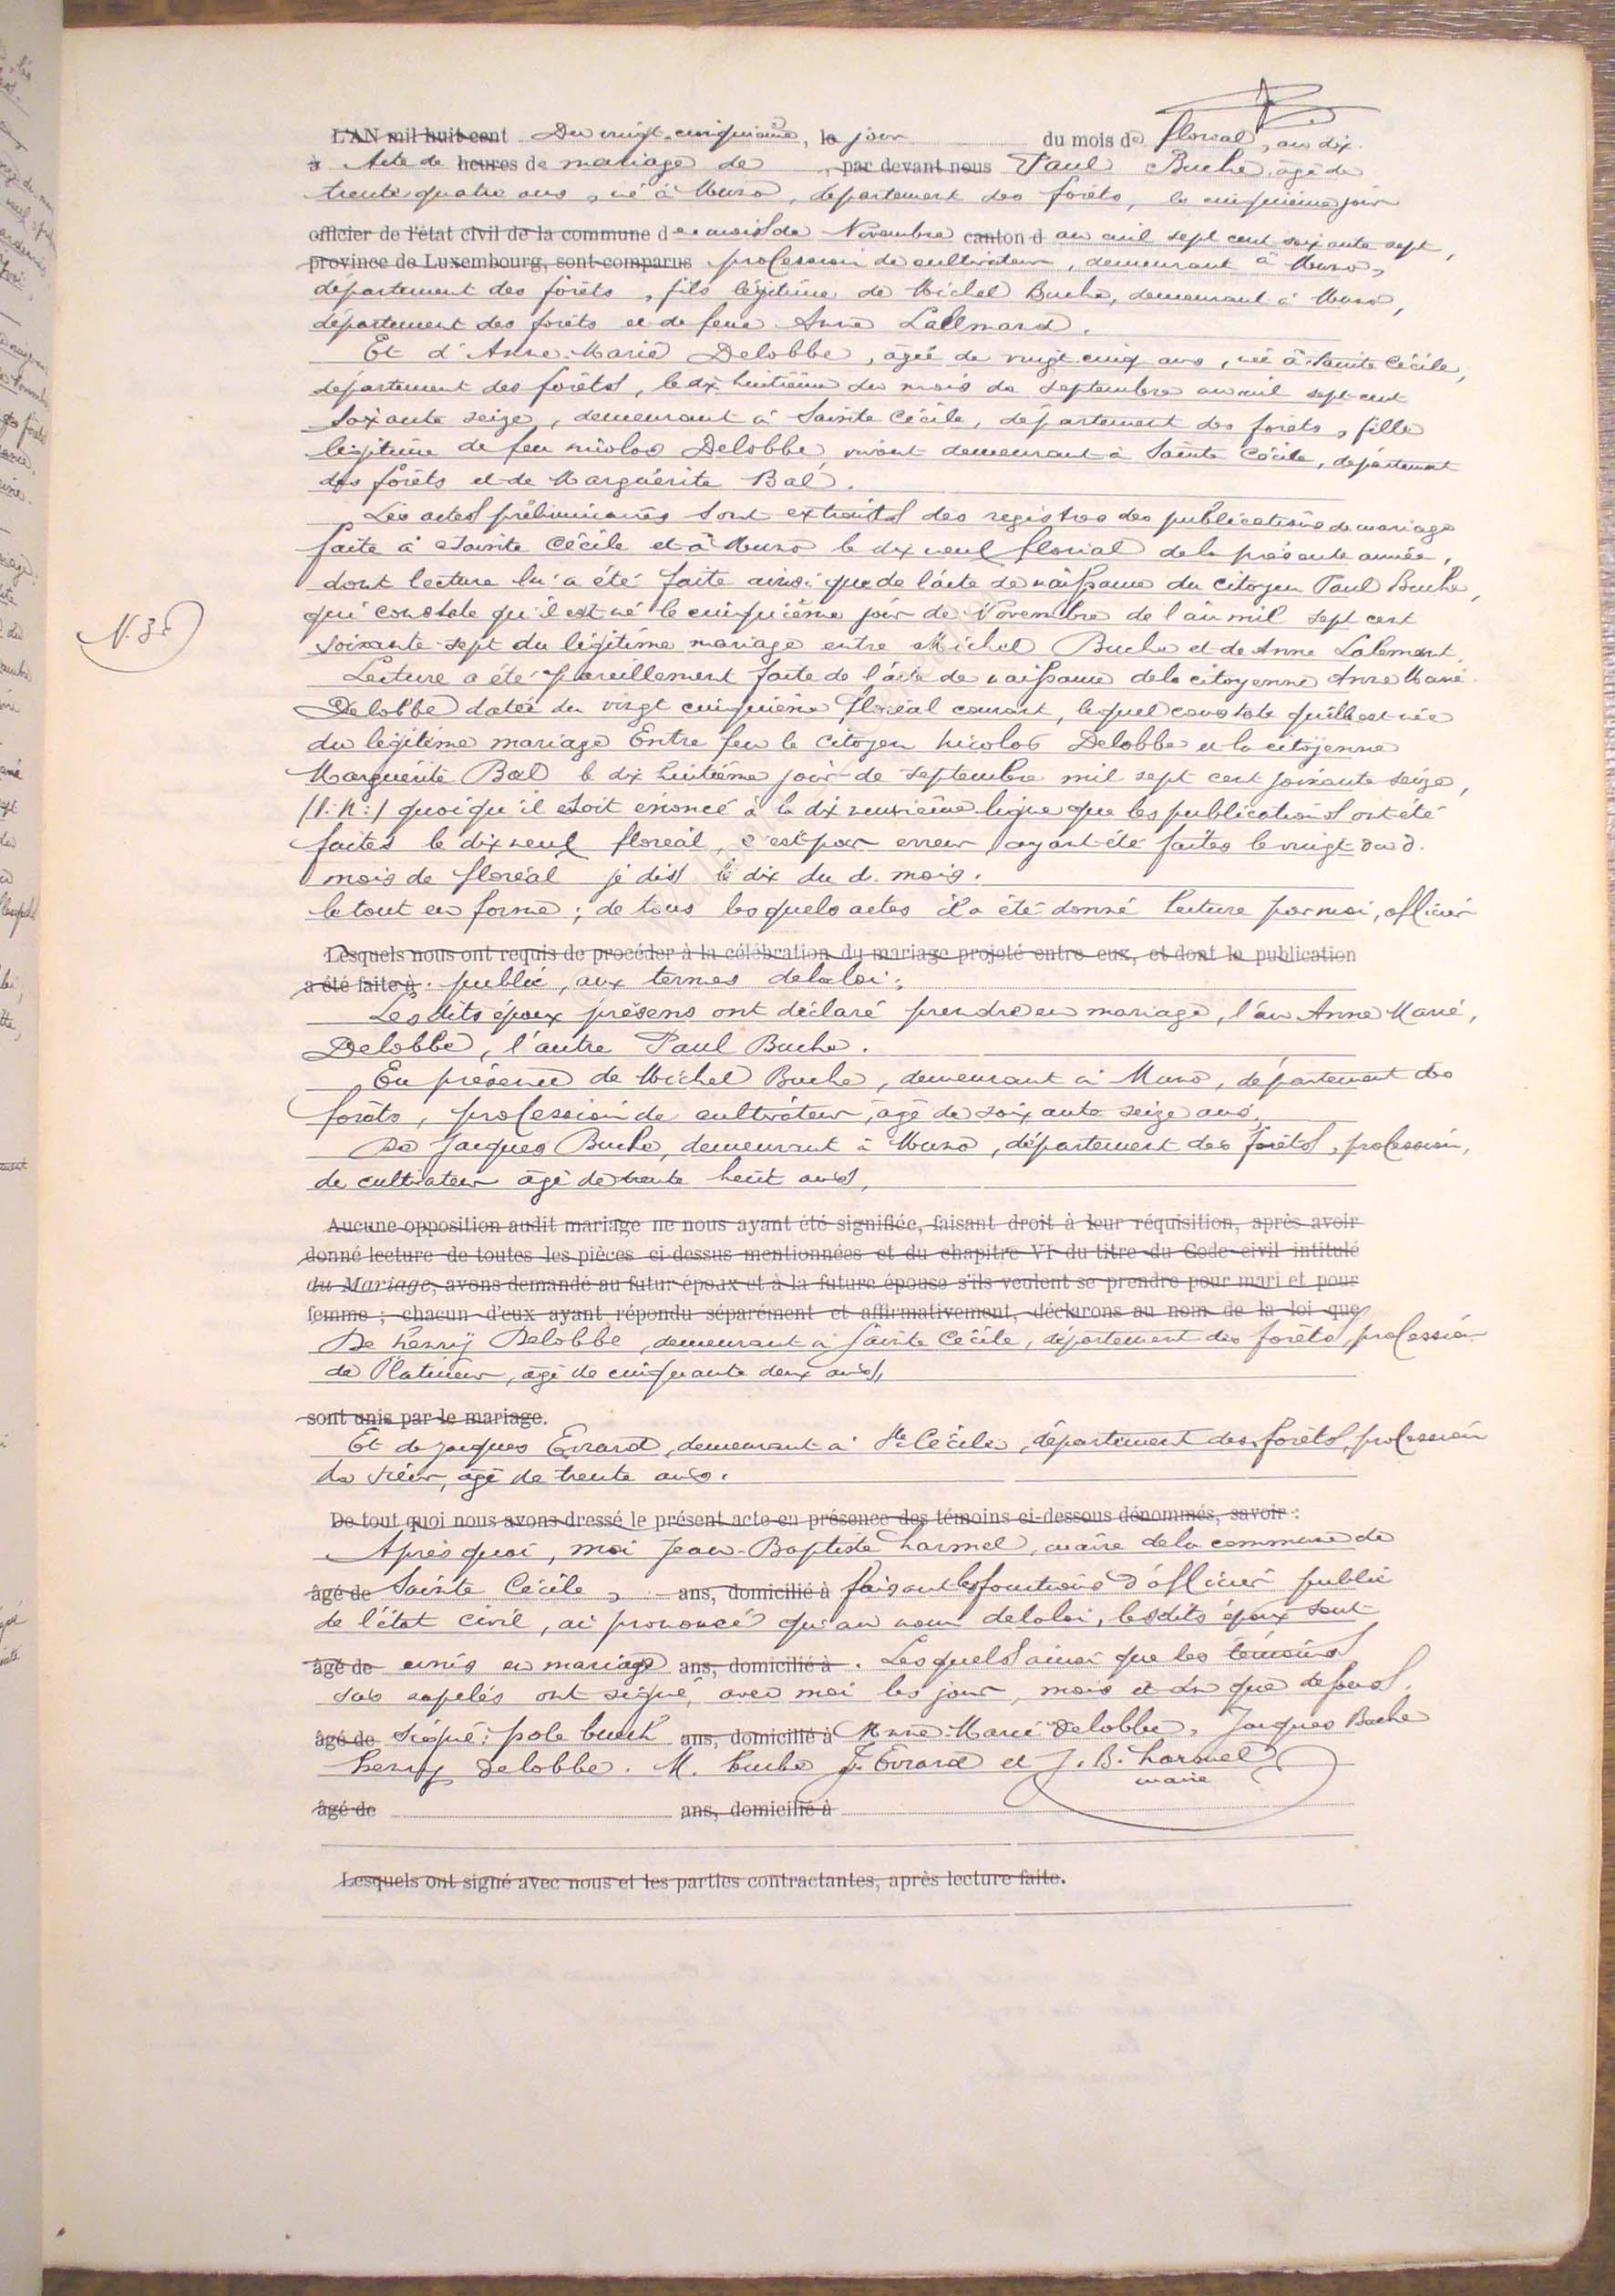 L'AN mil huit cent Du vingt-cinquième, le jour du mois de floréal, an dix.
à Acte de heures de mariage de , par devant nous Paul Buche, âgé de
trente quatre ans, né à Muno, département des forêts, le cinquième jour
officier de l'état civil de la commune d du mois de Novembre canton d an mil sept cent soixante sept,
province de Luxembourg, sont comparus profession de cultivateur, demeurant à Muno,
département des forêts, fils légitime de Michel Buche, demeurant à Muno,
département des forêts et de feue Anne Lallmand.
Et d'Anne-Marie Delobbe, âgée de vingt cinq ans, née à Sainte Cécile,
département des forêts, le dix huitième du mois de septembre an mil sept cent
soixante seize, demeurant à Sainte Cécile, département des forêts, fille
légitime de feu nicolas Delobbe, vivant demeurant à Sainte Cécile, département
des forêts et de Marguérite Bal.
Les actes préliminaires sont extraits des registres des publications de mariage
faite à Sainte Cécile et à Muno le dix neuf floréal de la présente année,
dont lecture lui a été faite ainsi que de l'acte de naissance du citoyen Paul Buche,
qui constate qu'il est né le cinquième jour de Novembre de l'an mil sept cent
soixante-sept du légitime mariage entre Michel Buche et de Anne Lalemant.
N. 3
Lecture a été pareillement faite de l'acte de naissance de la citoyenne Anne Marie
Delobbe datée du vingt cinquième floréal courant, lequel constate qu'elle est née
du légitime mariage Entre feu le citoyen nicolas Delobbe et la citoyenne
Marguérite Bal le dix huitième jour de septembre mil sept cent soixante seize,
/:N:/ quoiqu'il soit énoncé à la dix neuvième ligne que les publications ont été
faites le dix neuf floréal, c'est par erreur ayant été faites le vingt du d.
mois de floréal je dis le dix du d. mois.
le tout en forme; de tous lesquels actes il a été donné lecture par moi, officier
Lesquels nous ont requis de procéder à la célébration du mariage projeté entre eux, et dont la publication
a été faite à public, aux termes de la loi;
Les dits époux présens ont déclaré prendre en mariage, l'un Anne Marie,
Delobbe, l'autre Paul Buche.
En présence de Michel Buche, demeurant à Muno, département des
forêts, profession de cultivateur, âgé de soixante seize ans,
De Jacques Buche, demeurant à Muno, département des forêts, profession,
de cultivateur âgé de trente huit ans,
Aucune opposition audit mariage ne nous ayant été signifiée, faisant droit à leur réquisition, après avoir
donné lecture de toutes les pièces ci-dessus mentionnées et du chapitre VI du titre du Code civil intitulé
du Mariage, avons demandé au futur époux et à la future épouse s'ils veulent se prendre pour mari et pour
femme; chacun d'eux ayant répondu séparément et affirmativement, déclarons au nom de la loi que
De henrij Delobbe, demeurant à Sainte Cécile, département des forêts, profession
de Platineur, âgé de cinquante deux ans,
sont unis par le mariage.
Et de Jacques Evrard, demeurant à Ste Cécile, département des forêts, profession
de âgé de trente ans.
De tout quoi nous avons dressé le présent acte en présence des témoins ci-dessous dénommés, savoir :
Après quoi, moi Jean-Baptiste harmel, maire de la commune de
âgé de Sainte Cécile, ans, domicilié à faisant les fonctions d'officier public
de l'état civil, ai prononcé qu'au nom de la loi, les dits époux sont
âgé de unis en mariage ans, domicilié à. Lesquels ainsi que les témoins
sus rapelés ont signé, avec moi les jour, mois et an que dessus.
âgé de signé: pole buch ans, domicilié à Anne-Marie Delobbe, Jacques Buche
henry Delobbe. M. buche J. Evrard et J. B. harmel
maire
âgé de ans, domicilié à
Lesquels ont signé avec nous et les parties contractantes, après lecture faite.